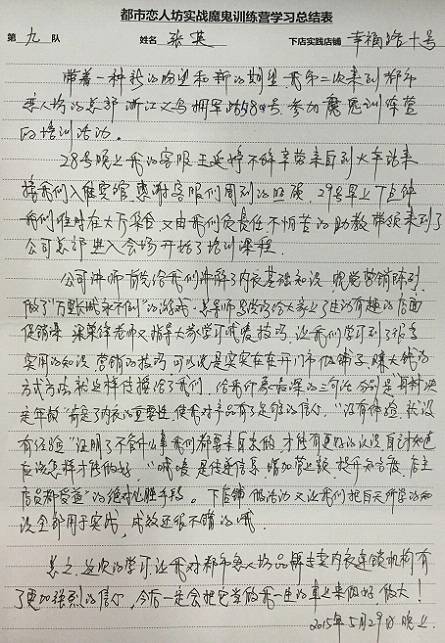 都市恋人坊实战魔鬼训练营学习总结表
第 九 队 姓名 张英 下店实践店铺 幸福路十号
带着一种新的渴望和新的期望,我第二次来到都市
恋人坊的总部浙江义乌拥军路58号,参加魔鬼训练营
的培训活动。
28号晚上我的客服王延婷不辞辛苦亲自到火车站来
接我们入住宾馆,感谢客服们周到的照顾,29号早上7点钟
我们准时在大厅集合,又由我们负责任不怕苦的助教带领来到了
公司总部进入会场开始了培训课程
公司讲师首先给我们讲解了内衣基础知识,视觉营销陈列,
做了“万里长城永不倒”的游戏,导师给大家上了生动有趣的店面
促销课 梁老师又指导大家学习吆喝技巧,让我们学习到了很多
实用的知识,营销的技巧,可以说是实实在在开门市做铺子,赚大钱的
方式方法就这样传授给了我们,给我印象最深的三句话,分别是“身材决
定年龄”肯定了内衣的重要性,使我对产品有了足够的信心,“没有体验,就没
有经验”证明了不管什么事我们都要亲自来做,才能有更好的认识,自己知道
应该怎样才能做好 “吆喝是传递信息,增加营业额,提升知名度,店主
店员都会喊”的绝对必胜手段。下店铺做活动又让我们把白天所学的知
识全部用于实践,成效还很不错的哦
总之,这次的学习,让我对都市恋人坊品牌专卖内衣连锁机构有
了更加强烈的信心,今后一定会把它当做我一生的事业来做好做大!
2015年5月29日晚上